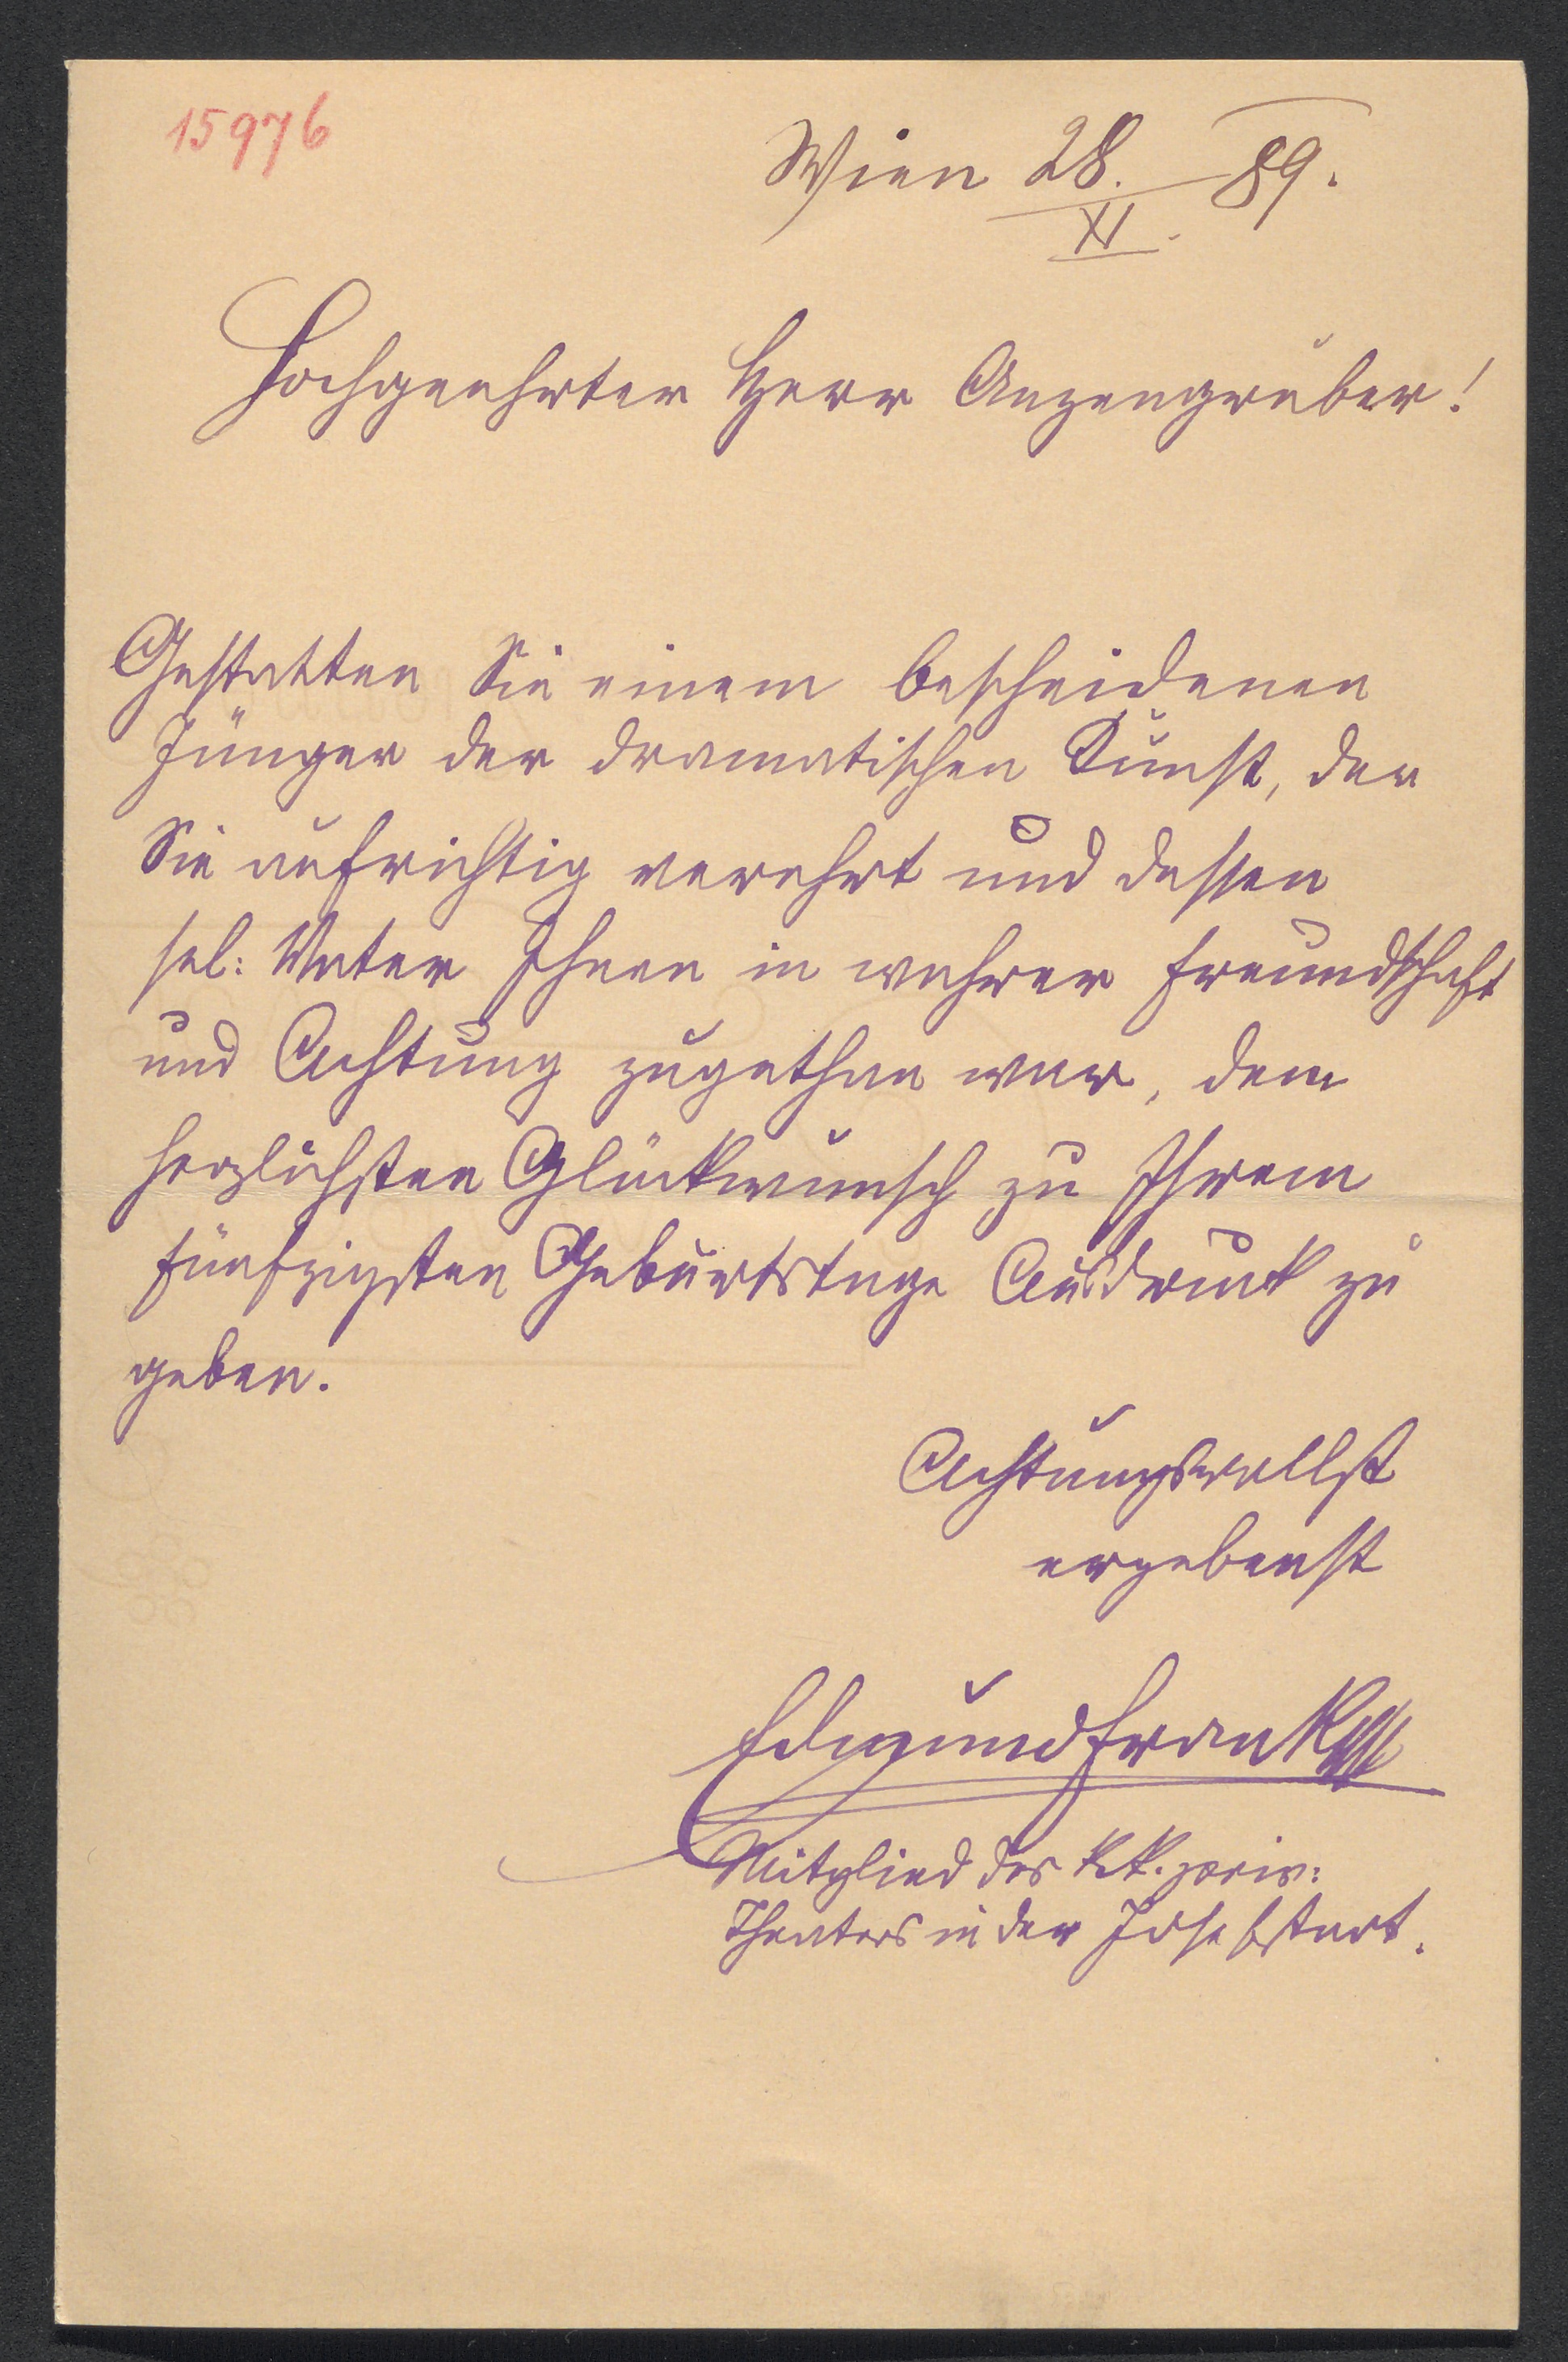 15976
Wien 28. 89.
XI.
Hochgeehrter Herr Anzengruber!
Gestatten Sie einem bescheidenen
Jünger der dramatischen Kunst, der
Sie aufrichtig verehrt und dessen
sel: Vater Ihnen in wahrer Freundschaft
und Achtung zugethan war, dem
herzlichsten Glückwunsch zu Ihrem
fünfzigsten Geburtstage Ausdruck zu
geben.
Achtungsvollst
ergebenst
Edmund Frank
Mitglied des k.k. priv:
Theaters in der Josefstadt.